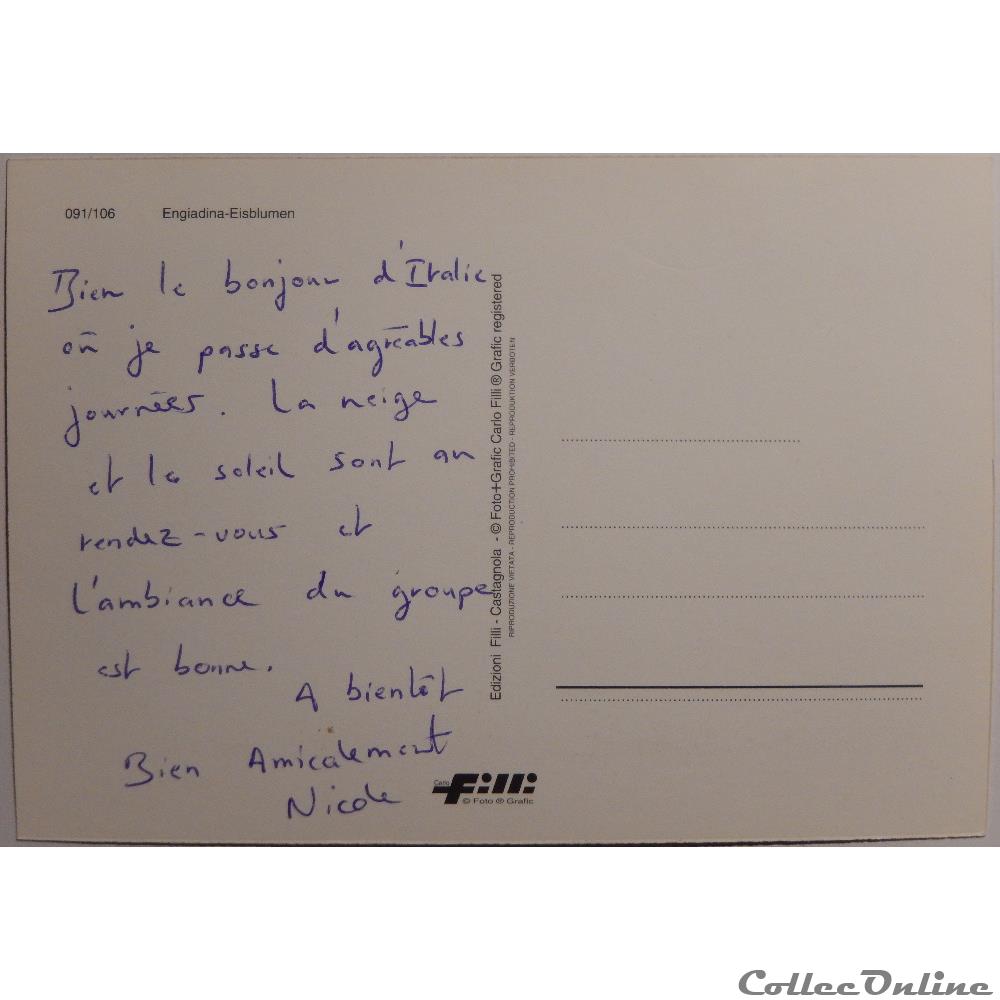 091/106 Engiadina-Eisblumen
Bien le bonjour d'Italie
où je passe d'agréables
journées. La neige
et le soleil sont au
rendez-vous et
l'ambiance du groupe
est bonne.
A bientôt
Bien Amicalement
Nicole
Edizioni Filli - Castagnola - © Foto+Grafic Carlo Filli ® Grafic registered
RIPRODUZIONE VIETATA - REPRODUCTION PROHIBITED - REPRODUKTION VERBOTEN
Carlo Filli
© Foto ® Grafic
CollecOnline